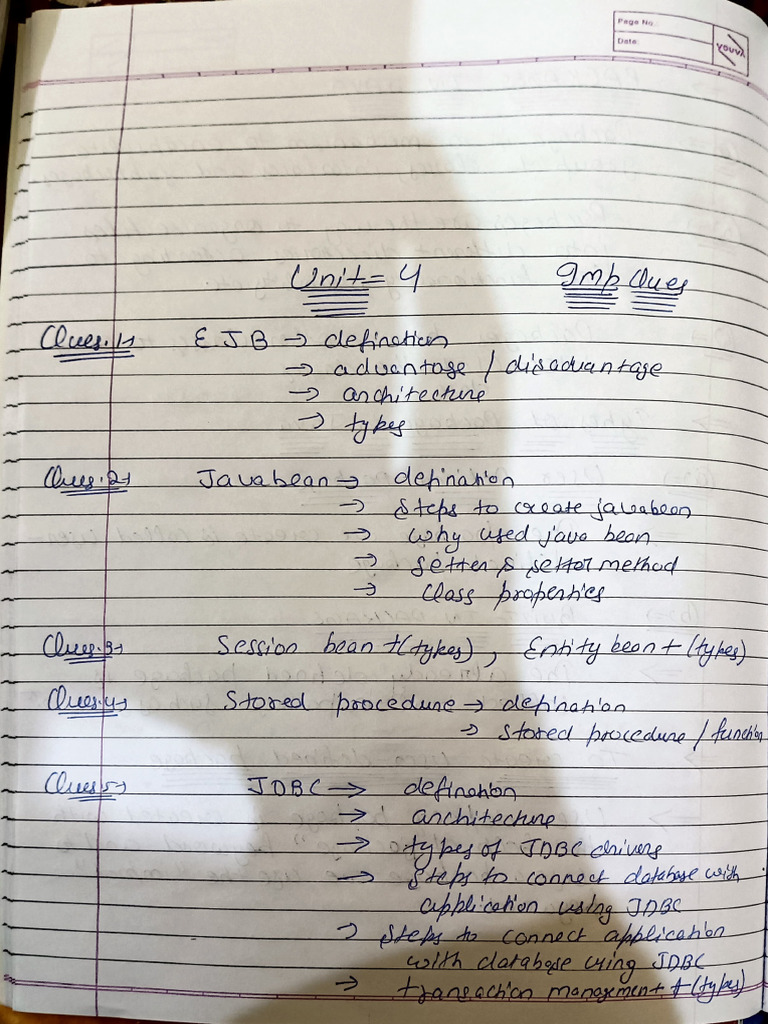 Page No.
Date:
YOUVA
Unit = 4 Imp Ques
Ques.1→ EJB → defination
→ advantage / disadvantage
→ architecture
→ types
Ques.2→ Javabean → defination
→ steps to create javabean
→ why used java bean
→ getter & setter method
→ class properties
Ques.3→ Session bean + (types), Entity bean + (types)
Ques.4→ Stored procedure → defination
→ stored procedure / function
Ques.5→ JDBC → defination
→ architecture
→ types of JDBC drivers
→ steps to connect database with
application using JDBC
→ steps to connect application
with database using JDBC
→ transaction management + (types)